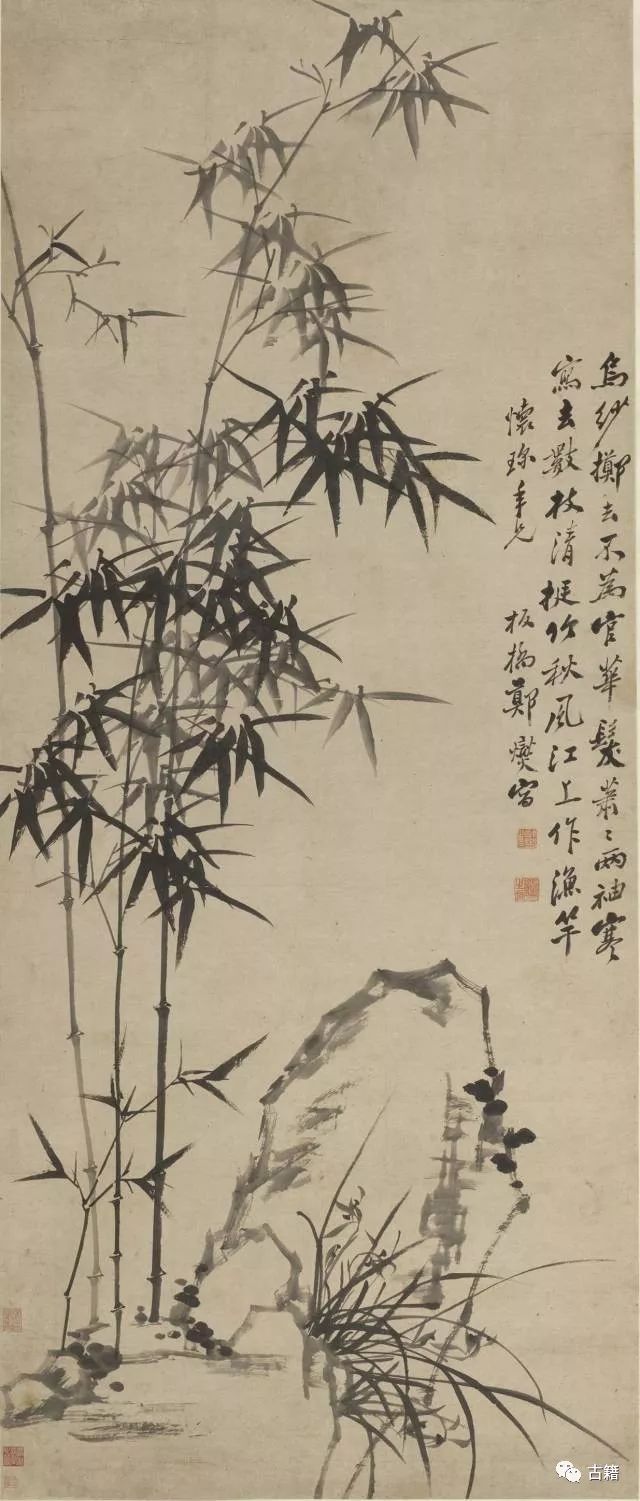 烏紗擲去不為官華髮蕭〻兩袖寒
寫去數枝清挺竹秋風江上作漁竿
懷琛年兄 板橋鄭燮寫
古籍